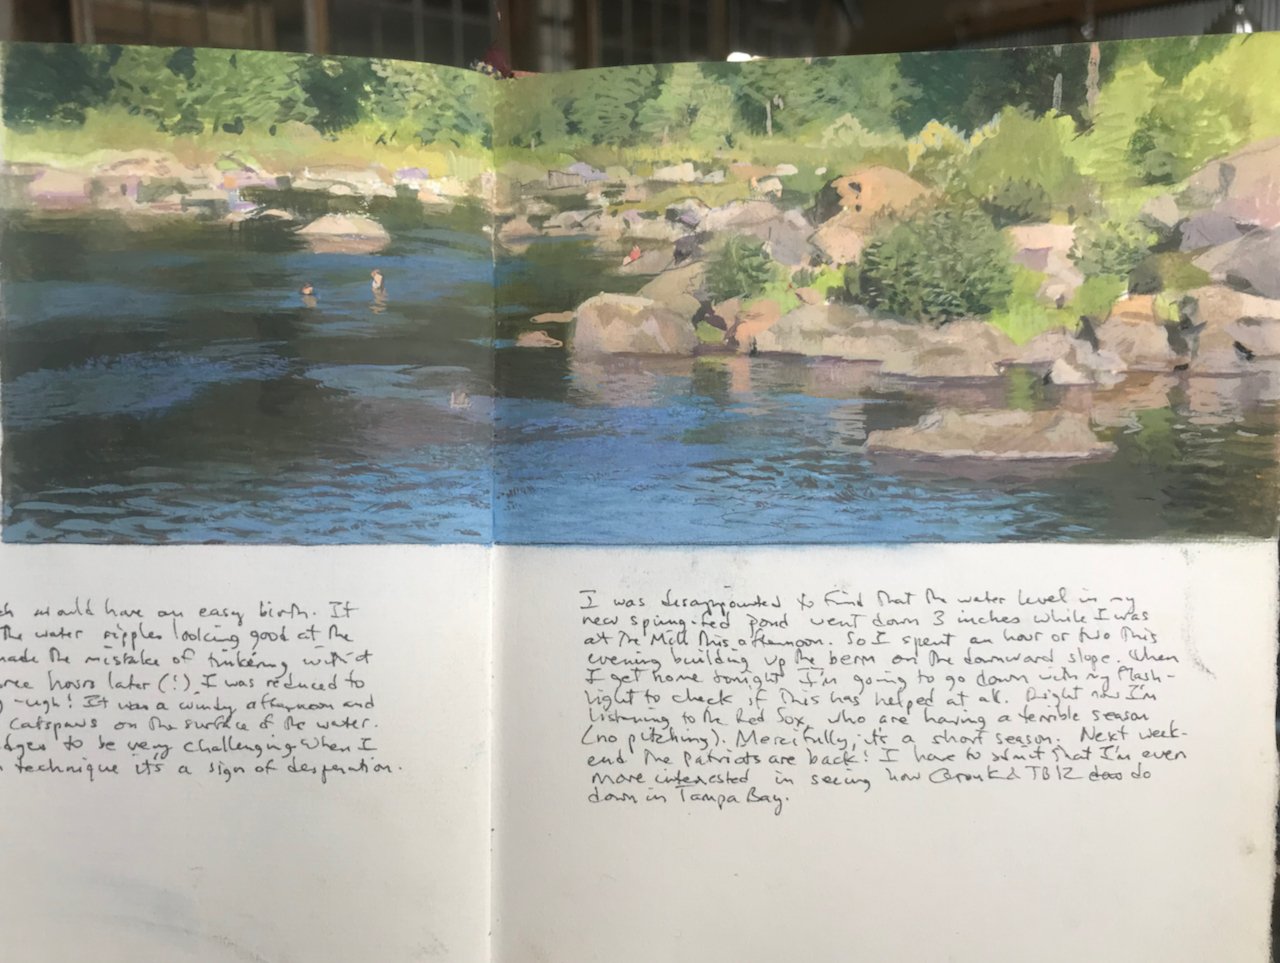 ch would have an easy birth. It
the water ripples looking good at the
made the mistake of tinkering with it
three hours later (!) I was reduced to
-ugh! It was a windy afternoon and
catspaws on the surface of the water.
to be very challenging. When I
technique it's a sign of desperation.
I was disappointed to find that the water level in my
new spring-fed pond went down 3 inches while I was
at the Mill this afternoon. So I spent an hour or two this
evening building up the berm on the downward slope. When
I get home tonight I'm going to go down with my flash-
light to check if this has helped at all. Right now I'm
listening to the Red Sox, who are having a terrible season
(no pitching). Mercifully, it's a short season. Next week-
end the Patriots are back! I have to admit that I'm even
more interested in seeing how Gronk & TB12 do
down in Tampa Bay.